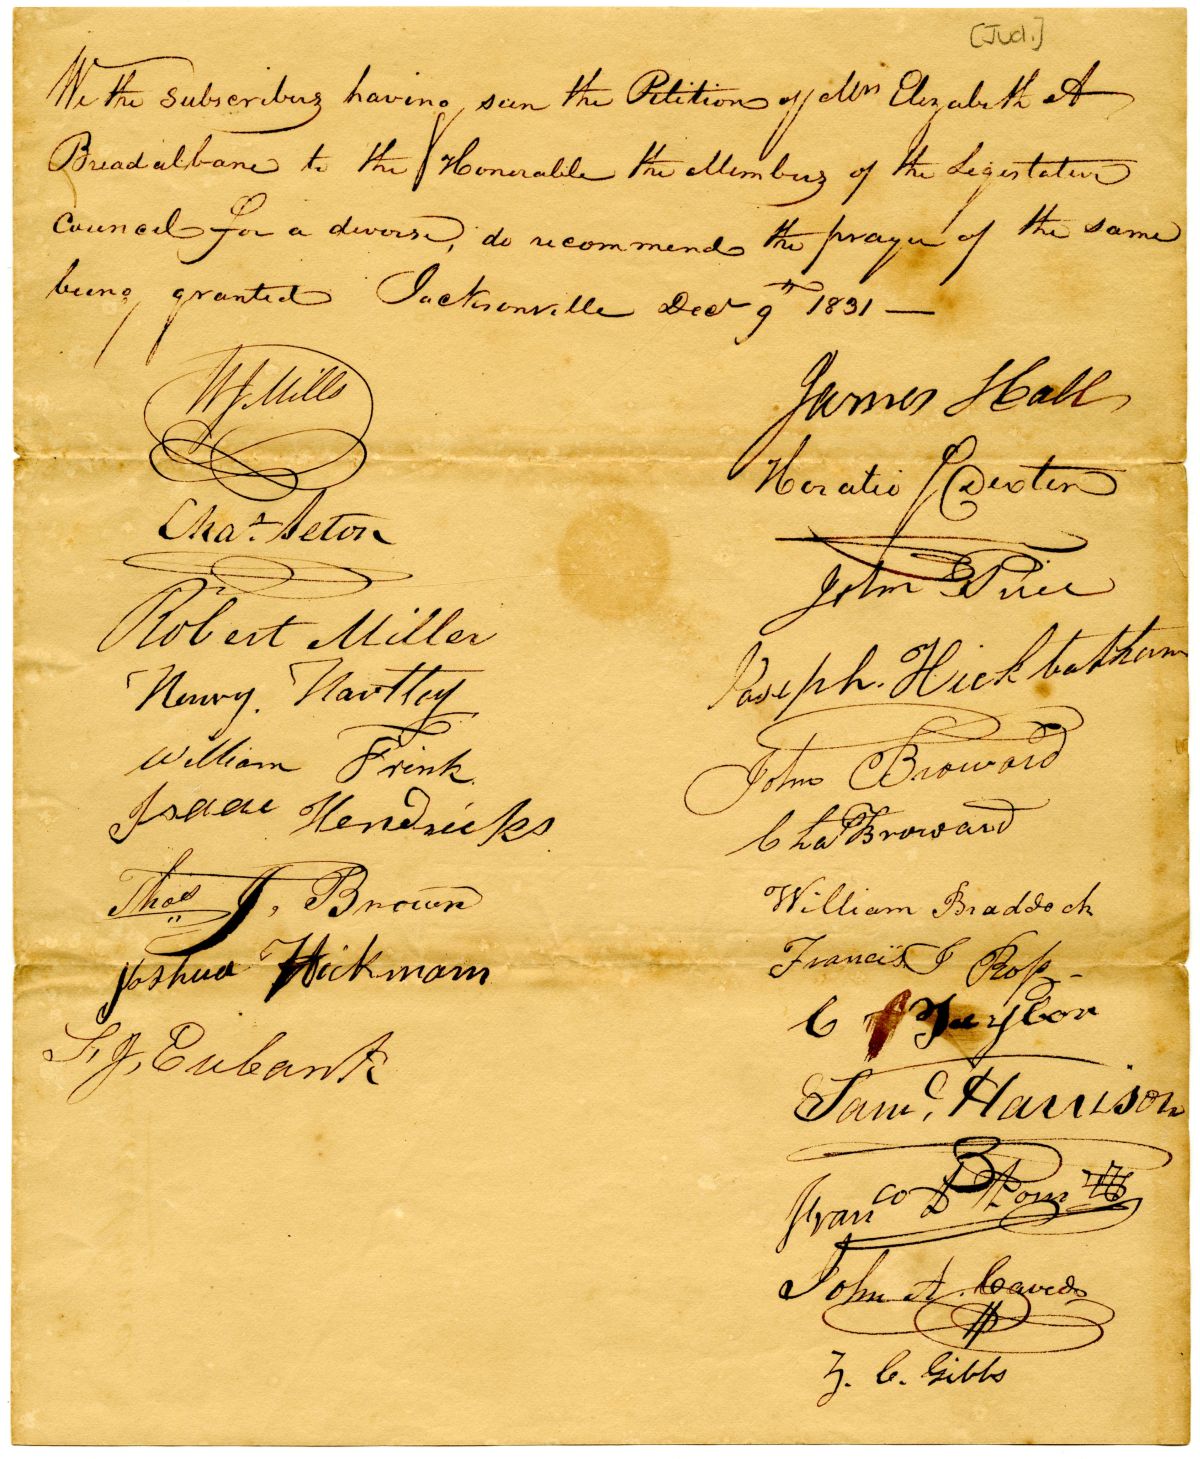 [Jud.]
We the Subscribers having seen the Petition of Mrs Elizabeth A
Breadalbane to the Honorable the Members of the Legestative
council for a divorse, do recommend the prayer of the same
being granted Jacksonville Decr 9th 1831 —
W J Mills
Chas. Seton
Robert Miller
Henry Hartley
William Frink
Isaac Hendricks
Thos J. Brown
Joshua Hickmam
J. Eubank
James Hall
Horatio S Dexter
John Price
Joseph. Hickbotham
John Broward
Chas Broward
William Braddock
Francis J Ross
C Taylor
Saml. Harrison
Franco
John A. Cavedo
Z. C. Gibbs